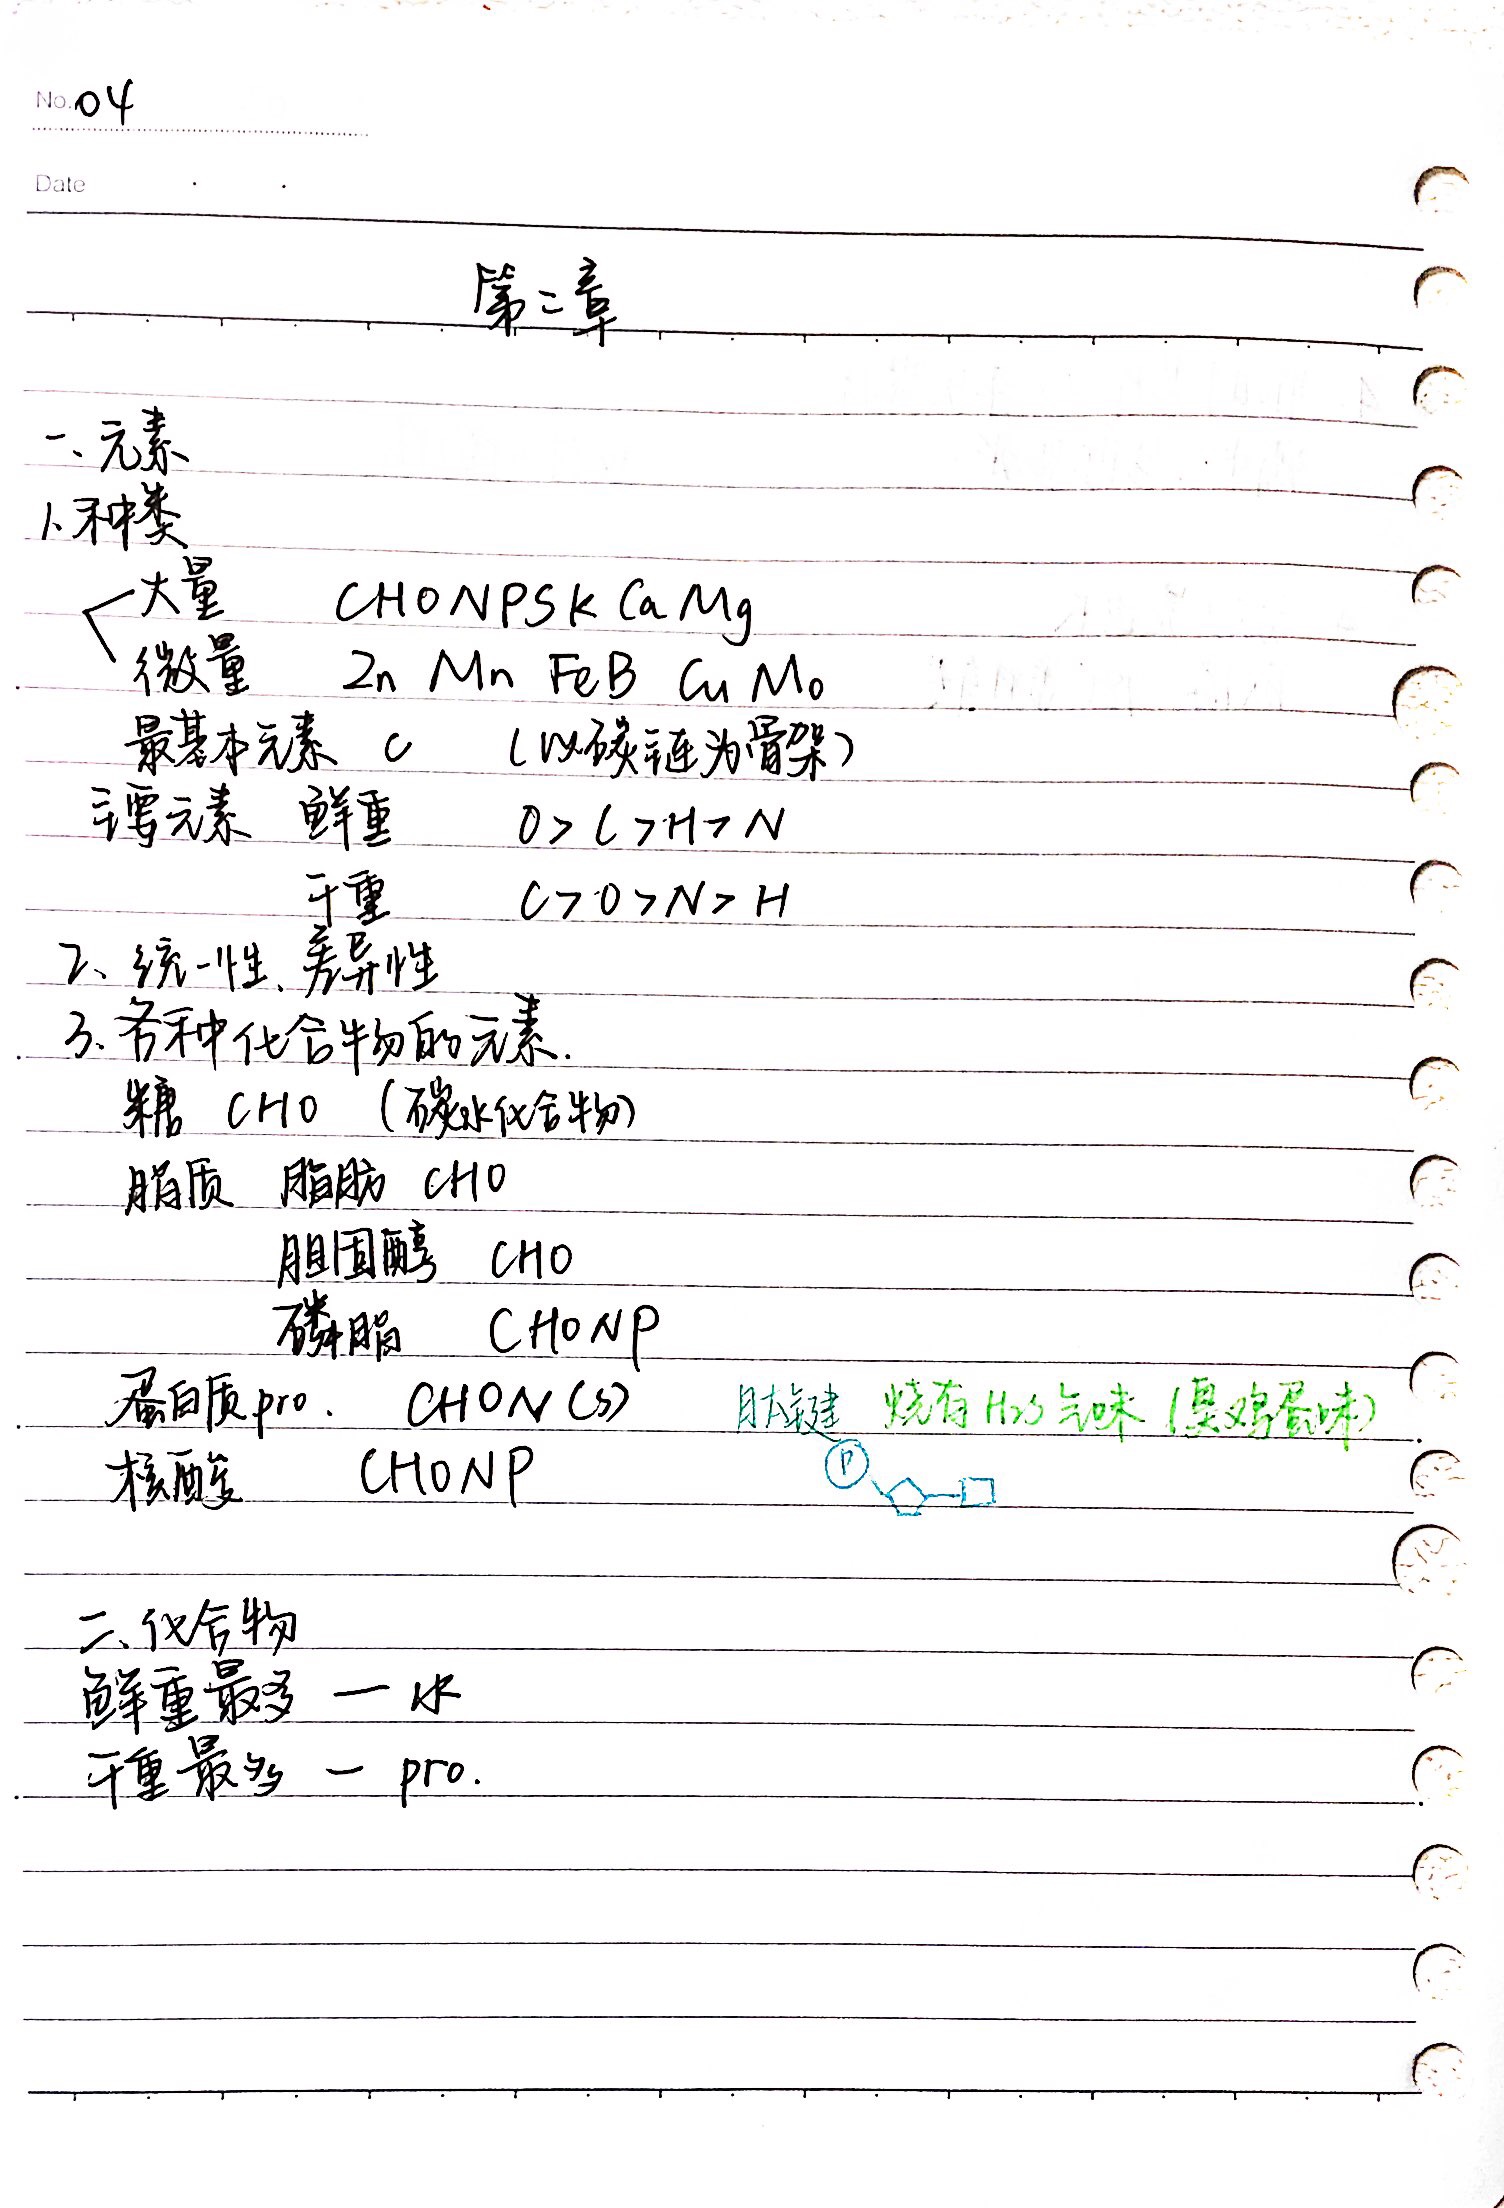 No. 04
Date
第二章
一、元素
1、种类
大量 CHONPSKCaMg
微量 Zn Mn Fe B Cu Mo
最基本元素 C (以碳链为骨架)
主要元素 鲜重 O>C>H>N
干重 C>O>N>H
2、统一性、差异性
3、各种化合物的元素.
糖 CHO (碳水化合物)
脂质 脂肪 CHO
胆固醇 CHO
磷脂 CHONP
蛋白质pro. CHON(S) 肽键 烧有H2S气味(臭鸡蛋味)
核酸 CHONP P
二、化合物
鲜重最多 — 水
干重最多 — pro.